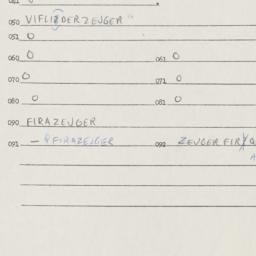 050 VIFLINDERZEUGER
051 0
060 0 061 0
070 0 071 0
080 0 081 0
090 FIRAZEUGER
091 — FIRAZEUGER 092 ZEUGER FIR